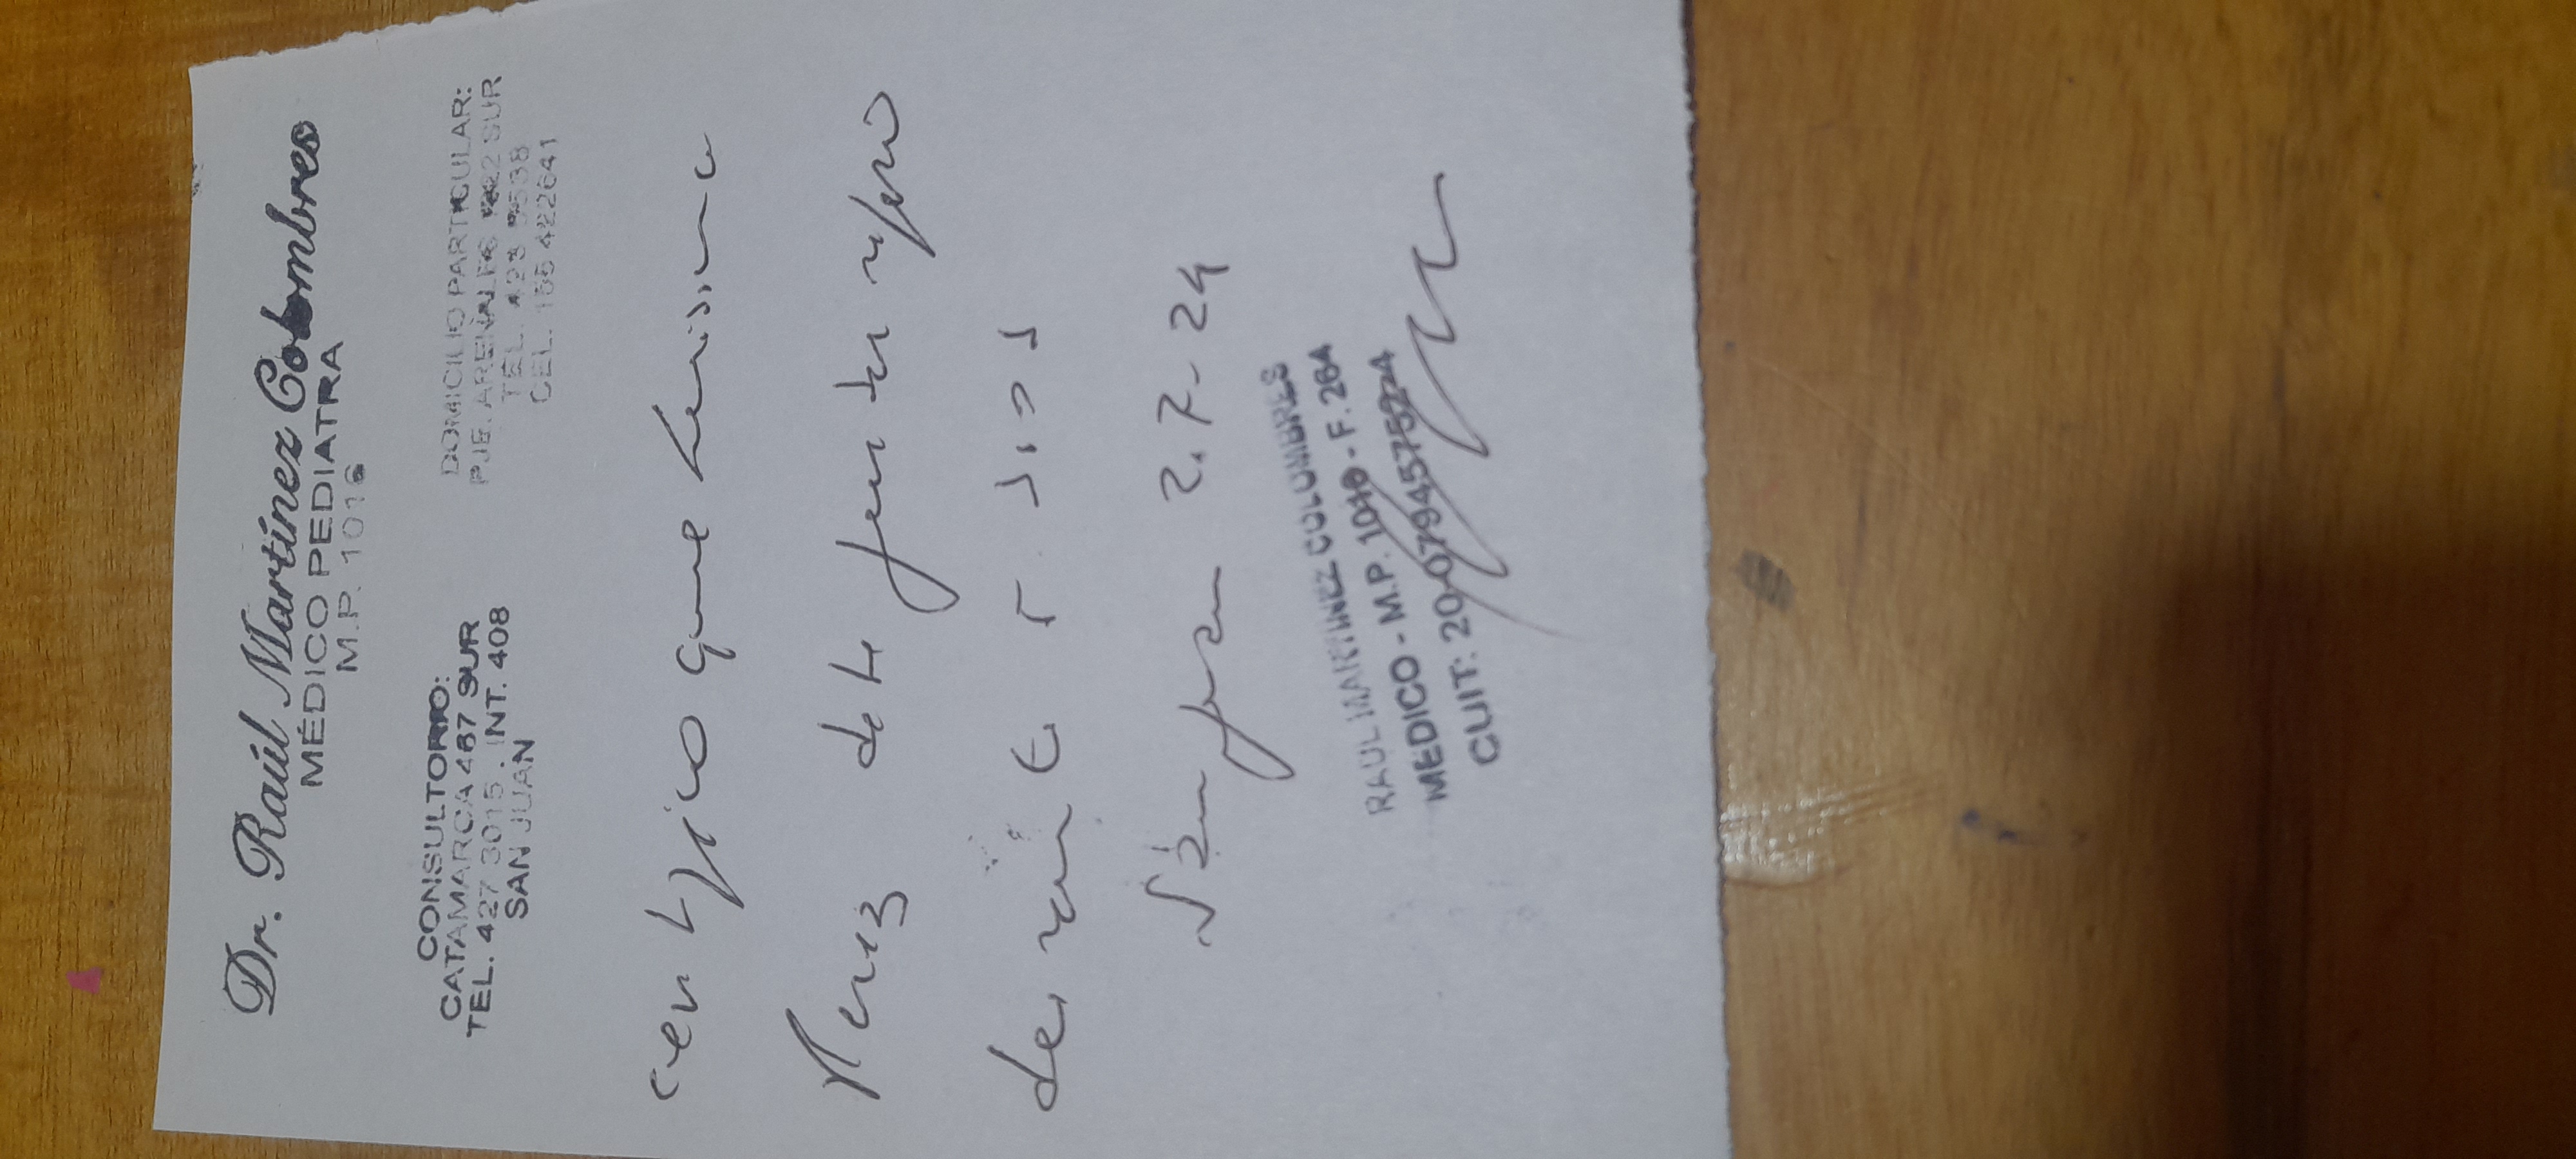 Dr. Raúl Martínez Colombres
MÉDICO PEDIATRA
M.P. 1016
CONSULTORIO:
CATAMARCA 467 SUR
TEL. 427 3015 . INT. 408
SAN JUAN
DOMICILIO PARTICULAR:
PJE. ARENALES 822 SUR
TEL. 423
CEL. 155 422641
certifico que
debe
durante 5 dias
San Juan 2.7.24
RAUL MARTINEZ COLOMBRES
MEDICO - M.P. 1016 - F. 264
CUIT: 20-07945752-4